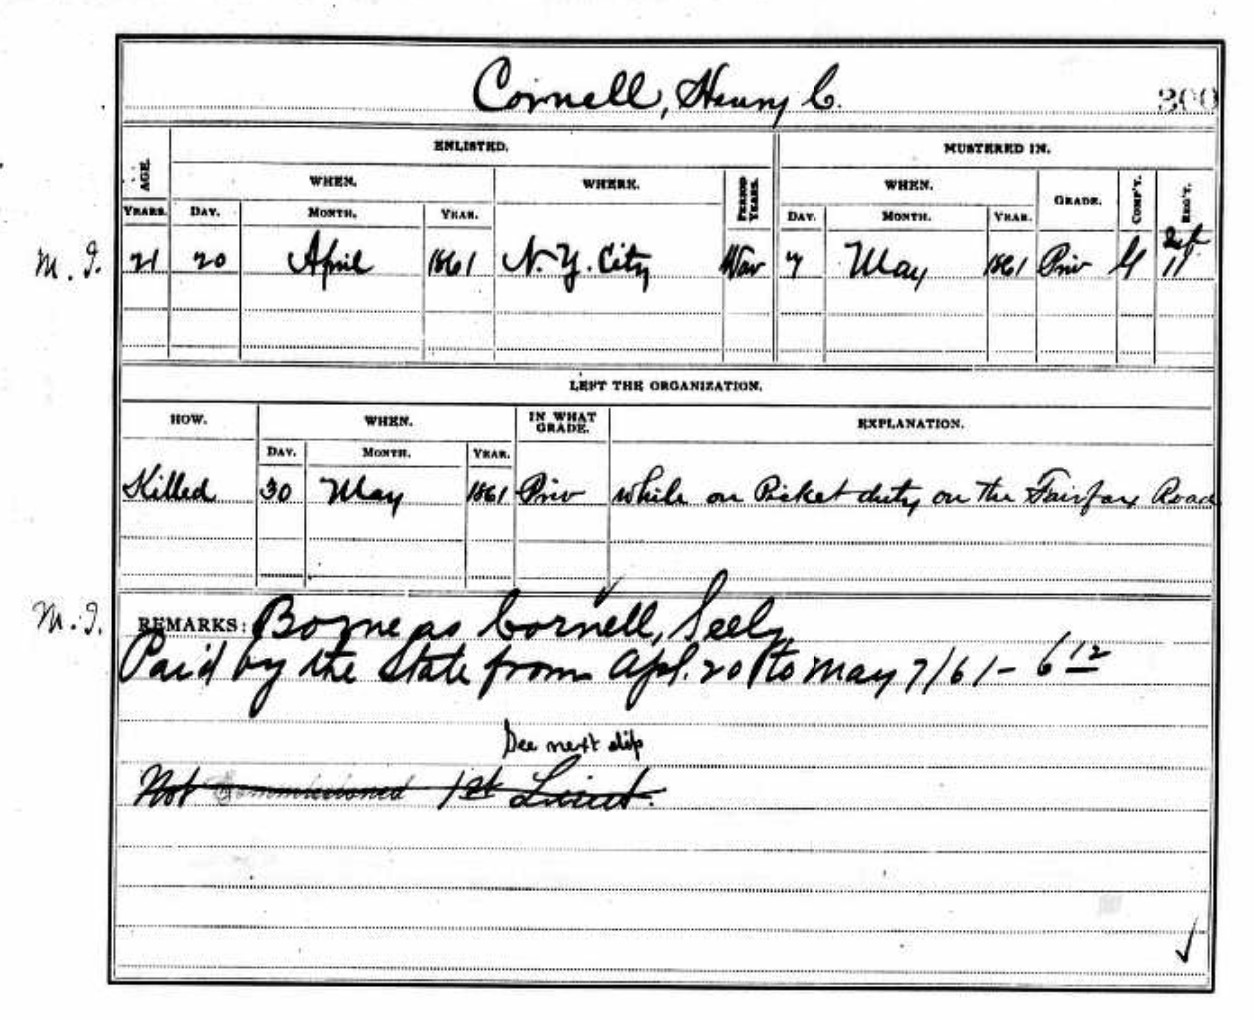 Cornell, Henry C.
300
AGE. ENLISTED. MUSTERED IN.
WHEN. WHERE. PERIOD YEARS. WHEN. GRADE. COMP'Y. REG'T.
YEARS. DAY. MONTH. YEAR. DAY. MONTH. YEAR.
M. I. 21 20 April 1861 N. Y. City War 7 May 1861 Priv G 11
LEFT THE ORGANIZATION.
HOW. WHEN. IN WHAT GRADE. EXPLANATION.
DAY. MONTH. YEAR.
Killed 30 May 1861 Priv while on Picket duty on the Fairfax Road
M. I. REMARKS: Borne as Cornell, Seely
Paid by the State from Apl. 20 to May 7/61 - 6 12
See next slip
Not Commissioned 1st Lieut.